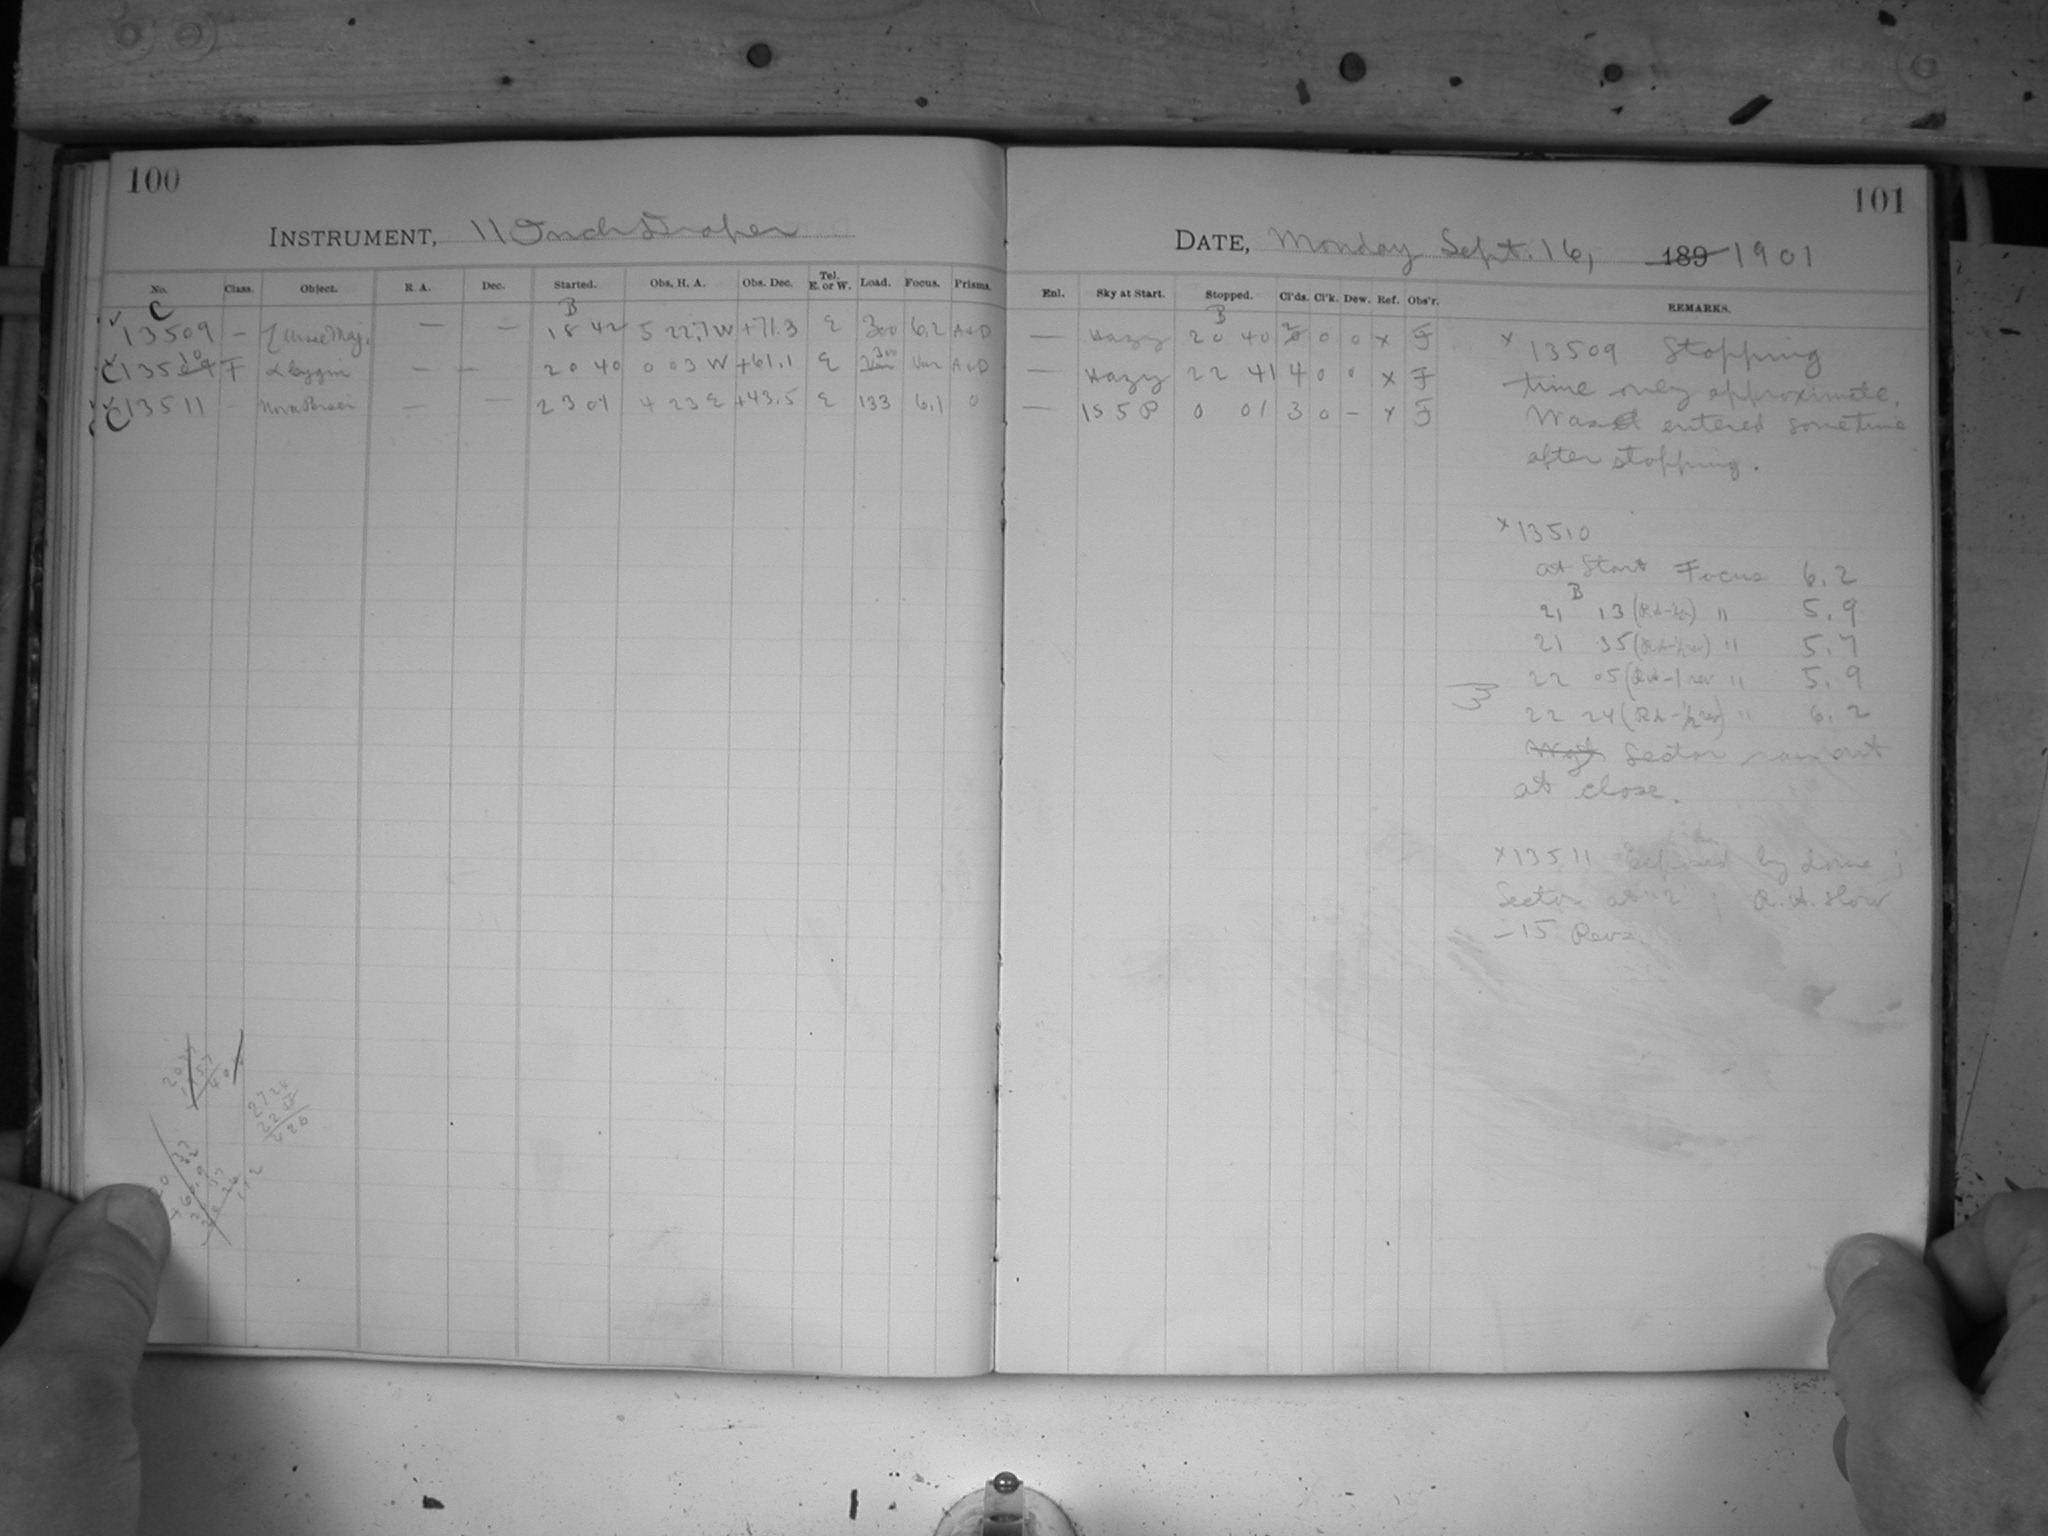 100
INSTRUMENT, 11 Inch Draper
No. Class. Object. R A. Dec. Started. Obs. H. A. Obs. Dec. Tel. E. or W. Load. Focus. Prisms.
C B
13509 — ζ Ursae Maj. — — 18 42 5 22.7 W +71.3 E 300 6.2 A+D
C 13510 F α Cygni — — 20 40 0 03 W +61.1 E 300 Var A+D
C 13511 — Nova Persei — — 23 07 4 23 E +43.5 E 133 6.1 0
2724
101
DATE, Monday Sept. 16, 189 1901
Enl. Sky at Start. Stopped. Cl'ds. Cl'k. Dew. Ref. Obs'r. REMARKS.
B
— Hazy 20 40 2 0 0 x F
— Hazy 22 41 4 0 0 x F
— 1 S 5 P 0 01 3 0 — x F
x 13509 Stopping
time only approximate.
Was entered sometime
after stopping.
x 13510
at Start Focus 6.2
B
21 13 " 5.9
21 35 (RA-1/2 rev) " 5.7
22 05 (RA-1 rev " 5.9
22 24 (RA-1/2 rev) " 6.2
Sector ran out
at close.
x 13511 Exposed by dome;
Sector at 2; R.A. slow
—15 Revs.